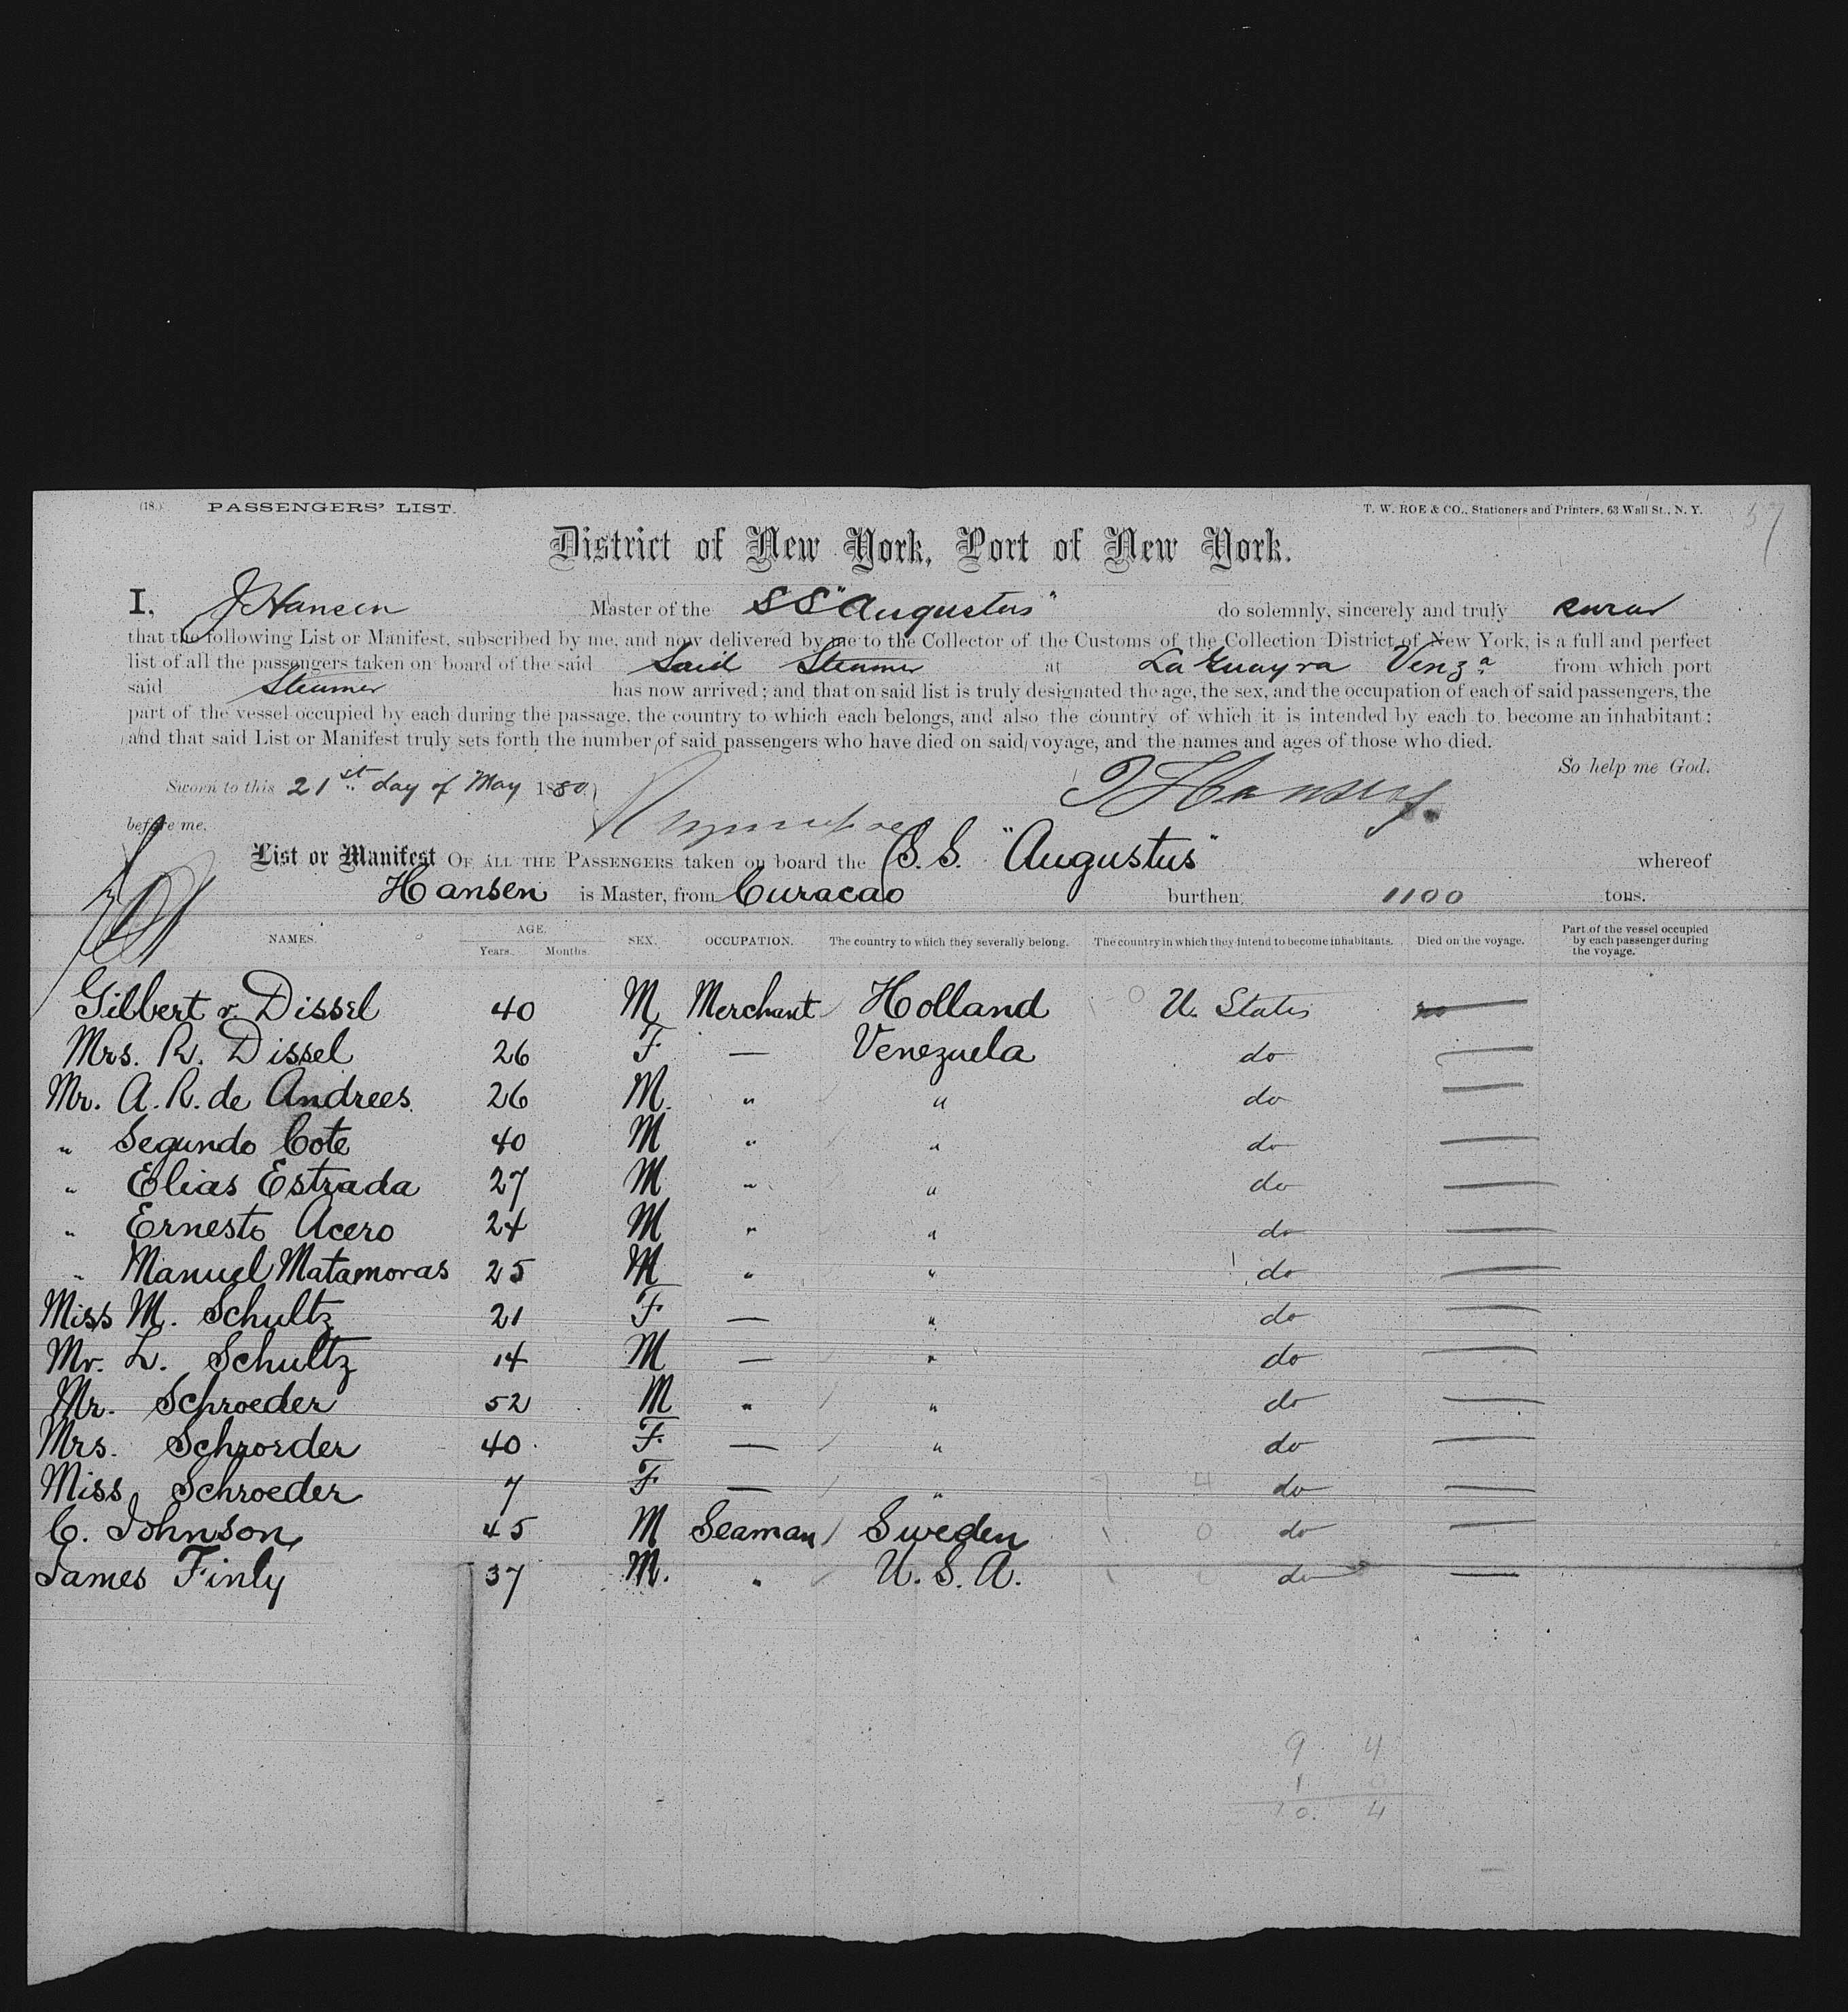 (18.) PASSENGERS' LIST. T. W. ROE & CO., Stationers and Printers, 63 Wall St., N. Y. 57
District of New York, Port of New York.
I, J Hansen Master of the S S "Augustus" do solemnly, sincerely and truly swear
that the following List or Manifest, subscribed by me, and now delivered by me to the Collector of the Customs of the Collection District of New York, is a full and perfect
list of all the passengers taken on board of the said Said Steamer at La Guayra Venza from which port
said Steamer has now arrived; and that on said list is truly designated the age, the sex, and the occupation of each of said passengers, the
part of the vessel occupied by each during the passage, the country to which each belongs, and also the country of which it is intended by each to become an inhabitant;
and that said List or Manifest truly sets forth the number of said passengers who have died on said voyage, and the names and ages of those who died.
So help me God.
Sworn to this 21st day of May 1880 J Hansen
before me,
List or Manifest OF ALL THE PASSENGERS taken on board the S. S. "Augustus" whereof
Hansen is Master, from Curacao burthen, 1100 tons.
NAMES. AGE. Years. Months. SEX. OCCUPATION. The country to which they severally belong. The country in which they intend to become inhabitants. Died on the voyage. Part of the vessel occupied by each passenger during the voyage.
Gilbert v. Dissel 40 M Merchant Holland 0 U. States no
Mrs. R. Dissel 26 F — Venezuela do —
Mr. A. R. de Andrees 26 M. " " do —
" Segundo Cote 40 M " " do —
" Elias Estrada 27 M " " do —
" Ernesto Acero 24 M " " do —
" Manuel Matamoras 25 M " " do —
Miss M. Schultz 21 F — " do —
Mr. L. Schultz 14 M — " do —
Mr. Schroeder 52 M " " do —
Mrs. Schroeder 40 F — " do —
Miss Schroeder 7 F — " 4 do —
C. Johnson 45 M Seaman Sweden 0 do —
James Finly 37 M. " U. S. A. do —
9 4
1 0
10. 4